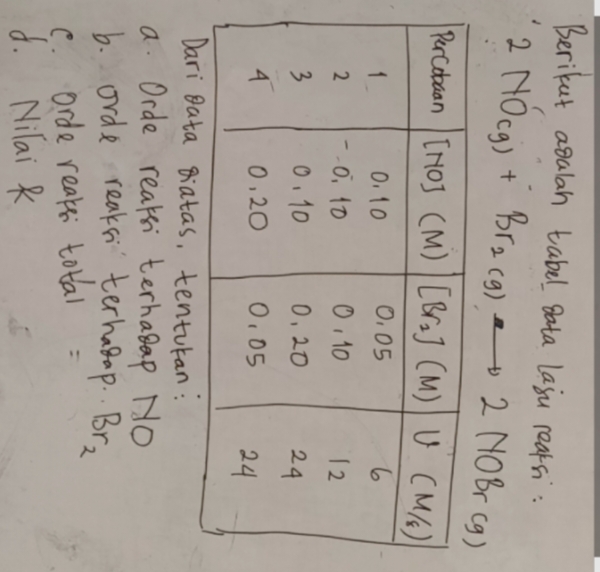 Berikut adalah tabel data laju reaksi :
2 NO(g) + Br2 (g) → 2 NOBr (g)
Percobaan [NO] (M) [Br2] (M) V (M/s)
1 0,10 0,05 6
2 0,10 0,10 12
3 0,10 0,20 24
4 0,20 0,05 24
Dari data diatas, tentukan :
a. Orde reaksi terhadap NO
b. orde reaksi terhadap Br2
c. Orde reaksi total =
d. Nilai k